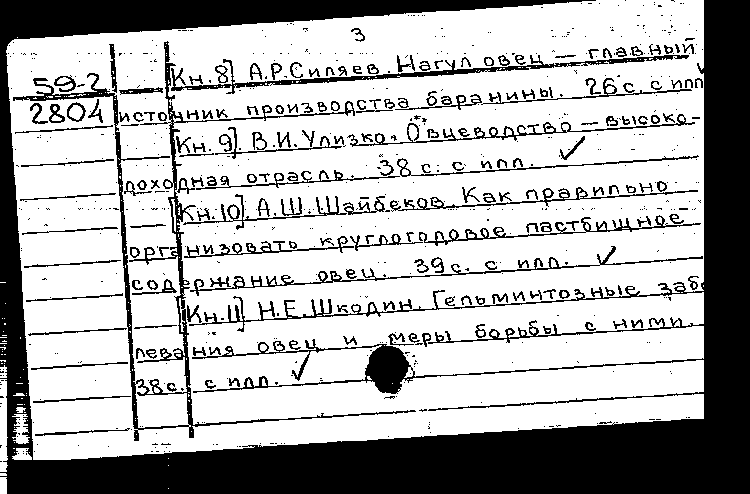 3
59-2 [Кн. 8]. А.Р.Силяев. Нагул овец — главный
2804 источник производства баранины. 26 с. с илл
[Кн. 9]. В.И. Улизко. Овцеводство — высоко-
доходная отрасль. 38 с. с илл. ✓
[Кн. 10]. А.Ш.Шайбеков. Как правильно
организовать круглогодовое пастбищное
содержание овец. 39 с. с илл. ✓
[Кн. 11]. Н.Е.Шкодин. Гельминтозные забо
левания овец и меры борьбы с ними.
38 с. с илл. ✓